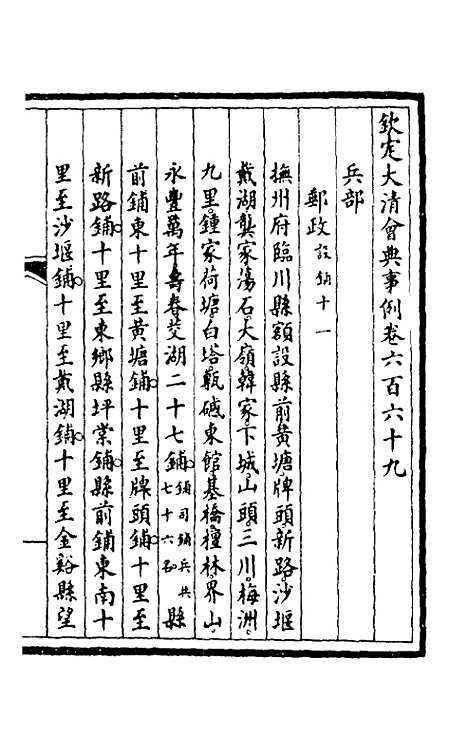 欽定大清會典事例卷六百六十九
兵部
郵政設鋪十一
撫州府臨川縣額設縣前黃塘牌頭新路沙堰
戴湖龔家蕩石大嶺韓家下城山頭三川梅洲
九里鍾家荷塘白塔甎磩東館基橋檀林界山
永豐萬年壽春茭湖二十七鋪鋪司鋪兵共七十六名縣
前鋪東十里至黃塘鋪十里至牌頭鋪十里至
新路鋪十里至東鄉縣坪棠鋪縣前鋪東南十
里至沙堰鋪十里至戴湖鋪十里至金谿縣望